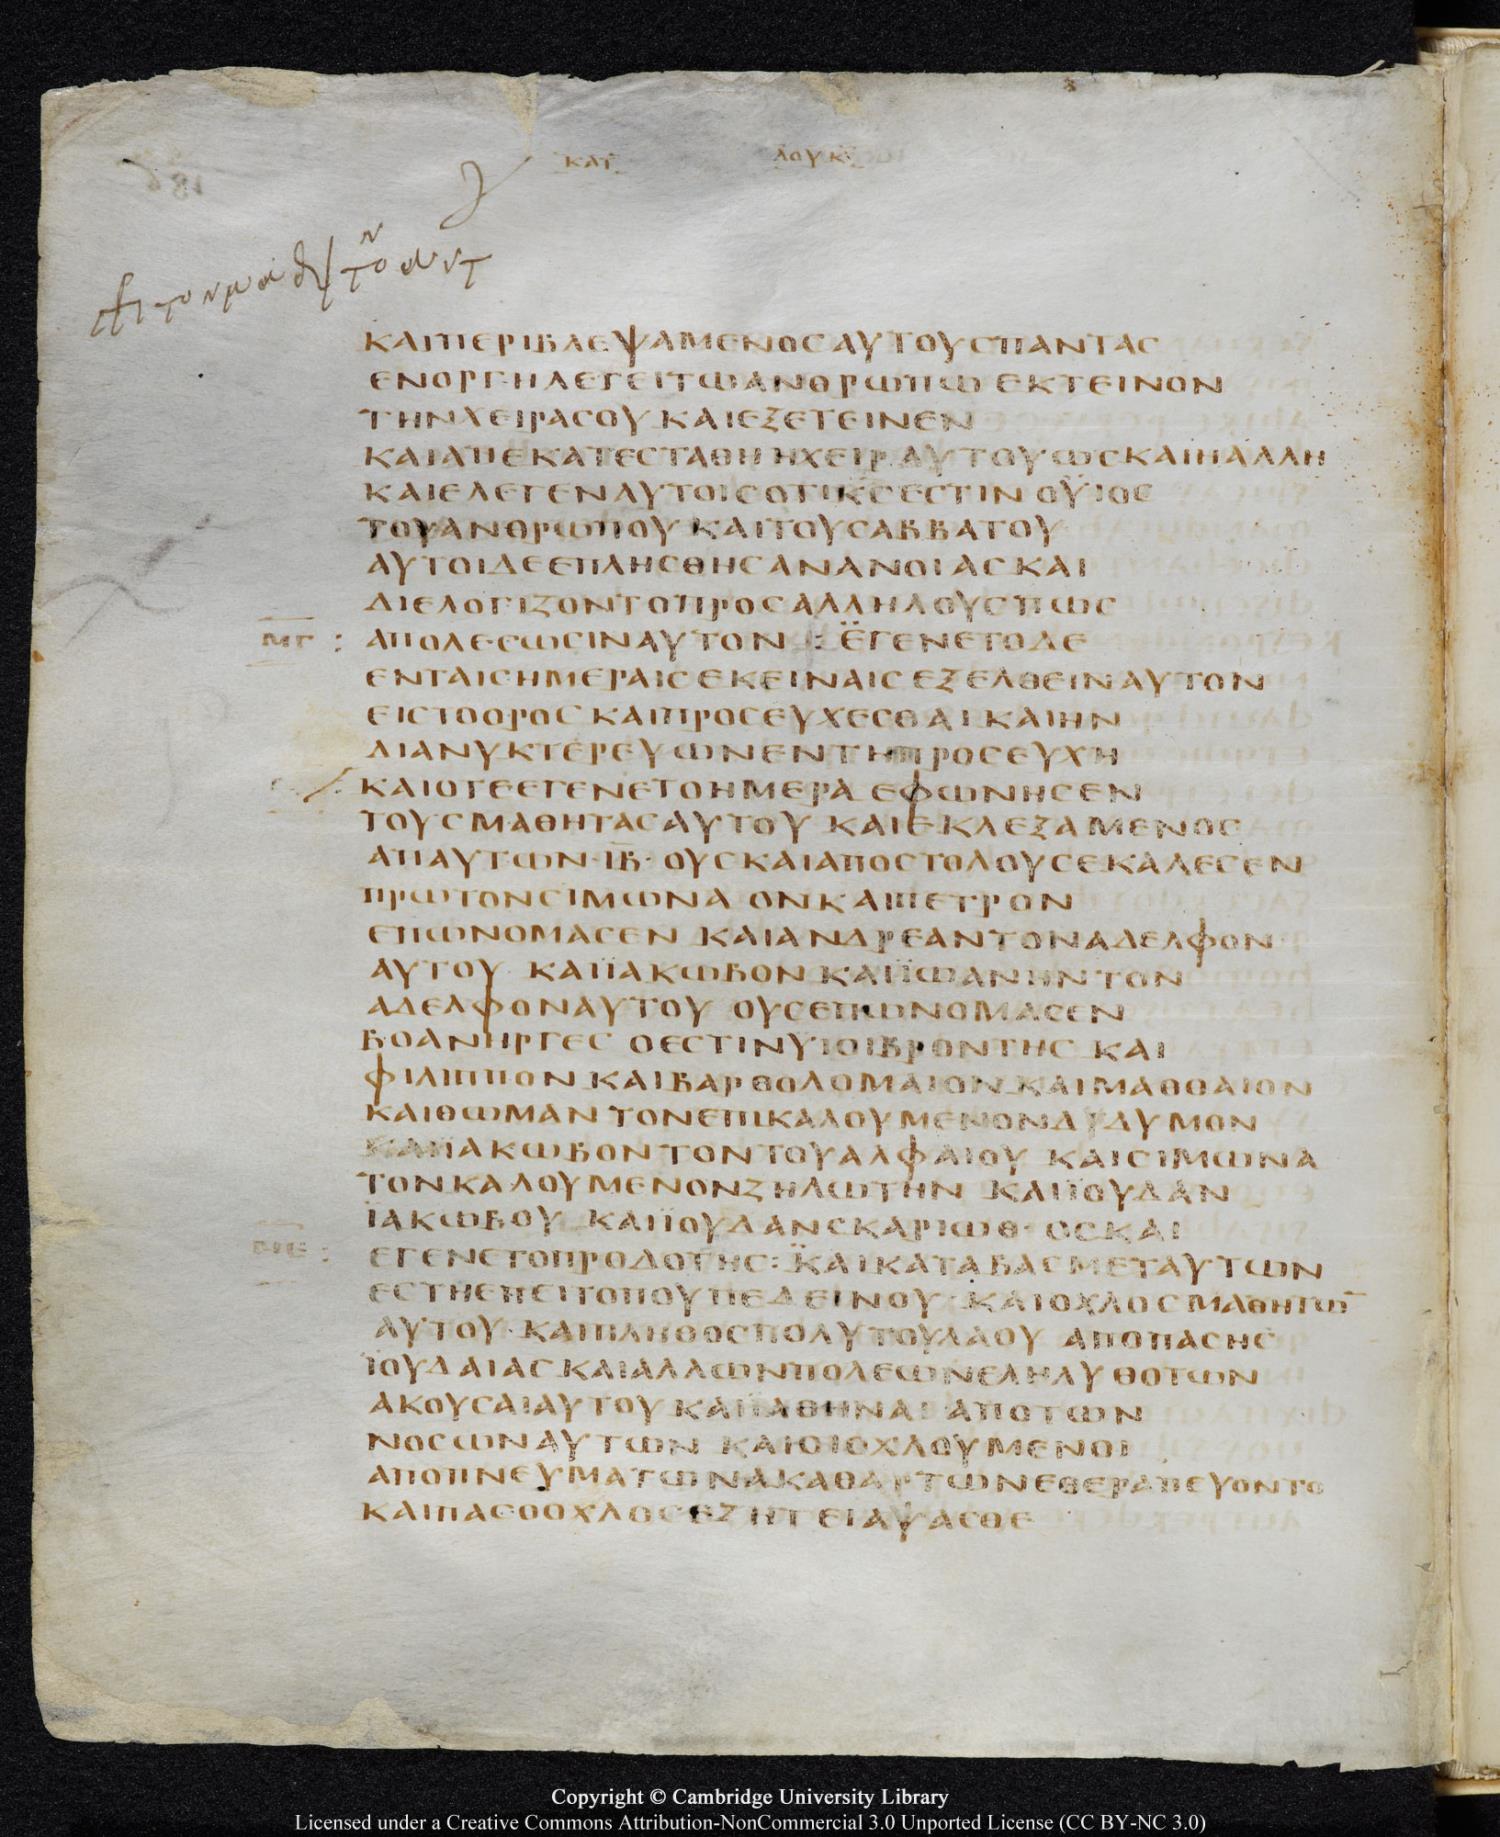 ΚΑΤ ΛΟΥΚ
ΚΑΙΠΕΡΙΒΛΕΨΑΜΕΝΟΣΑΥΤΟΥΣΠΑΝΤΑΣ
ΕΝΟΡΓΗΛΕΓΕΙΤΩΑΝΘΡΩΠΩ ΕΚΤΕΙΝΟΝ
ΤΗΝΧΕΙΡΑΣΟΥ ΚΑΙΕΞΕΤΕΙΝΕΝ
ΚΑΙΑΠΕΚΑΤΕΣΤΑΘΗ ΗΧΕΙΡ ΑΥΤΟΥ ΩΣΚΑΙΗΑΛΛΗ
ΚΑΙΕΛΕΓΕΝΑΥΤΟΙΣΟΤΙΚΣΕΣΤΙΝ ΟΫΙΟΣ
ΤΟΥΑΝΘΡΩΠΟΥ ΚΑΙΤΟΥΣΑΒΒΑΤΟΥ
ΑΥΤΟΙΔΕΕΠΛΗΣΘΗΣΑΝΑΝΟΙΑΣ ΚΑΙ
ΔΙΕΛΟΓΙΖΟΝΤΟΠΡΟΣΑΛΛΗΛΟΥΣΠΩΣ
ΜΓ : ΑΠΟΛΕΣΩΣΙΝΑΥΤΟΝ : ΕΓΕΝΕΤΟΔΕ
ΕΝΤΑΙΣΗΜΕΡΑΙΣΕΚΕΙΝΑΙΣ ΕΞΕΛΘΕΙΝΑΥΤΟΝ
ΕΙΣΤΟΟΡΟΣ ΚΑΙΠΡΟΣΕΥΧΕΣΘΑΙ ΚΑΙΗΝ
ΔΙΑΝΥΚΤΕΡΕΥΩΝΕΝΤΗΠΡΟΣΕΥΧΗ
ΚΑΙΟΤΕΕΓΕΝΕΤΟΗΜΕΡΑ ΕΦΩΝΗΣΕΝ
ΤΟΥΣΜΑΘΗΤΑΣΑΥΤΟΥ ΚΑΙΕΚΛΕΞΑΜΕΝΟΣ
ΑΠΑΥΤΩΝ·ΙΒ· ΟΥΣΚΑΙΑΠΟΣΤΟΛΟΥΣΕΚΑΛΕΣΕΝ
ΠΡΩΤΟΝΣΙΜΩΝΑ ΟΝΚΑΙΠΕΤΡΟΝ
ΕΠΩΝΟΜΑΣΕΝ ΚΑΙΑΝΔΡΕΑΝΤΟΝΑΔΕΛΦΟΝ
ΑΥΤΟΥ ΚΑΙΪΑΚΩΒΟΝ ΚΑΙΪΩΑΝΗΝΤΟΝ
ΑΔΕΛΦΟΝΑΥΤΟΥ ΟΥΣΕΠΩΝΟΜΑΣΕΝ
ΒΟΑΝΗΡΓΕΣ ΟΕΣΤΙΝΥΙΟΙΒΡΟΝΤΗΣ ΚΑΙ
ΦΙΛΙΠΠΟΝ ΚΑΙΒΑΡΘΟΛΟΜΑΙΟΝ ΚΑΙΜΑΘΘΑΙΟΝ
ΚΑΙΘΩΜΑΝ ΤΟΝΕΠΙΚΑΛΟΥΜΕΝΟΝΔΥΔΥΜΟΝ
ΚΑΙΪΑΚΩΒΟΝ ΤΟΝΤΟΥΑΛΦΑΙΟΥ ΚΑΙΣΙΜΩΝΑ
ΤΟΝΚΑΛΟΥΜΕΝΟΝΖΗΛΩΤΗΝ ΚΑΙΪΟΥΔΑΝ
ΪΑΚΩΒΟΥ ΚΑΙΪΟΥΔΑΝΣΚΑΡΙΩΘ· ΟΣΚΑΙ
ΜΕ : ΕΓΕΝΕΤΟΠΡΟΔΟΤΗΣ: ΚΑΙΚΑΤΑΒΑΣΜΕΤΑΥΤΩΝ
ΕΣΤΗΕΠΕΙΤΟΠΟΥΠΕΔΕΙΝΟΥ· ΚΑΙΟΧΛΟΣΜΑΘΗΤΩ̅
ΑΥΤΟΥ· ΚΑΙΠΛΗΘΟΣΠΟΛΥΤΟΥΛΑΟΥ ΑΠΟΠΑΣΗΣ
ΪΟΥΔΑΙΑΣ ΚΑΙΑΛΛΩΝΠΟΛΕΩΝΕΛΗΛΥΘΟΤΩΝ
ΑΚΟΥΣΑΙΑΥΤΟΥ ΚΑΙΪΑΘΗΝΑΙ ΑΠΟΤΩΝ
ΝΟΣΩΝΑΥΤΩΝ ΚΑΙΟΙΟΧΛΟΥΜΕΝΟΙ
ΑΠΟΠΝΕΥΜΑΤΩΝΑΚΑΘΑΡΤΩΝΕΘΕΡΑΠΕΥΟΝΤΟ
ΚΑΙΠΑΣΟΟΧΛΟΣΕΖΗΤΕΙΑΨΑΣΘΕ
Copyright © Cambridge University Library
Licensed under a Creative Commons Attribution-NonCommercial 3.0 Unported License (CC BY-NC 3.0)